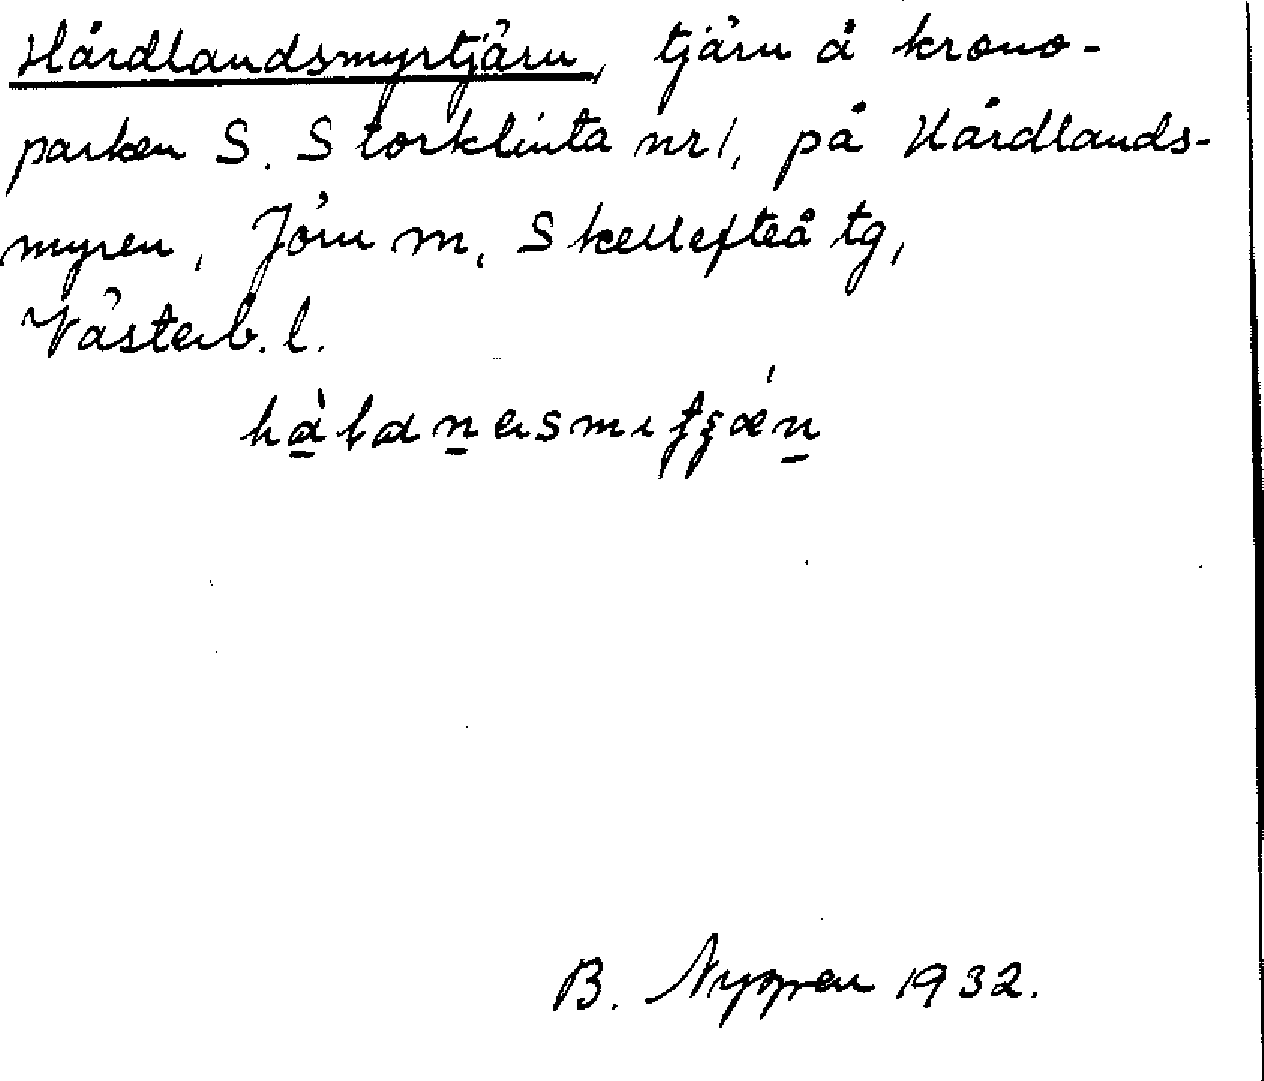 Hårdlandsmyrtjärn, tjärn å krono-
parken S. Storklinta nr 1, på Hårdlands-
myren, Jörn m, Skellefteå tg,
Västerb. l.
B. Nygren 1932.